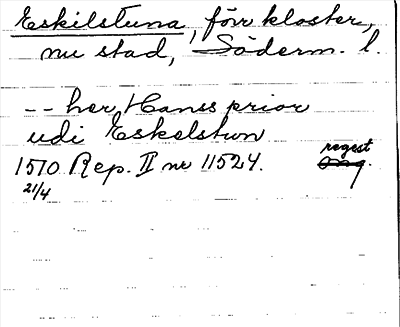 Eskilstuna, förr kloster,
nu stad, Söderm. l.
-- her Hanss prior
udi Eskelstwn
regest
1510 Rep. II nr 11524. orig.
21/4